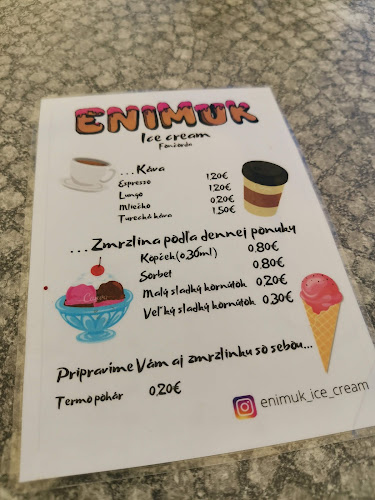 ENIMUK
Ice cream
...Káva
Espresso 1,20€
Lungo 1,20€
Mliečko 0,20€
Turecká káva 1,50€
...Zmrzlina podľa dennej ponuky
Kopček(0,30ml) 0,80€
Sorbet 0,80€
Malý sladký kornútok 0,20€
Veľký sladký kornútok 0,30€
Pripravíme Vám aj zmrzlinku so sebou...
Termo pohár 0,20€
enimuk_ice_cream